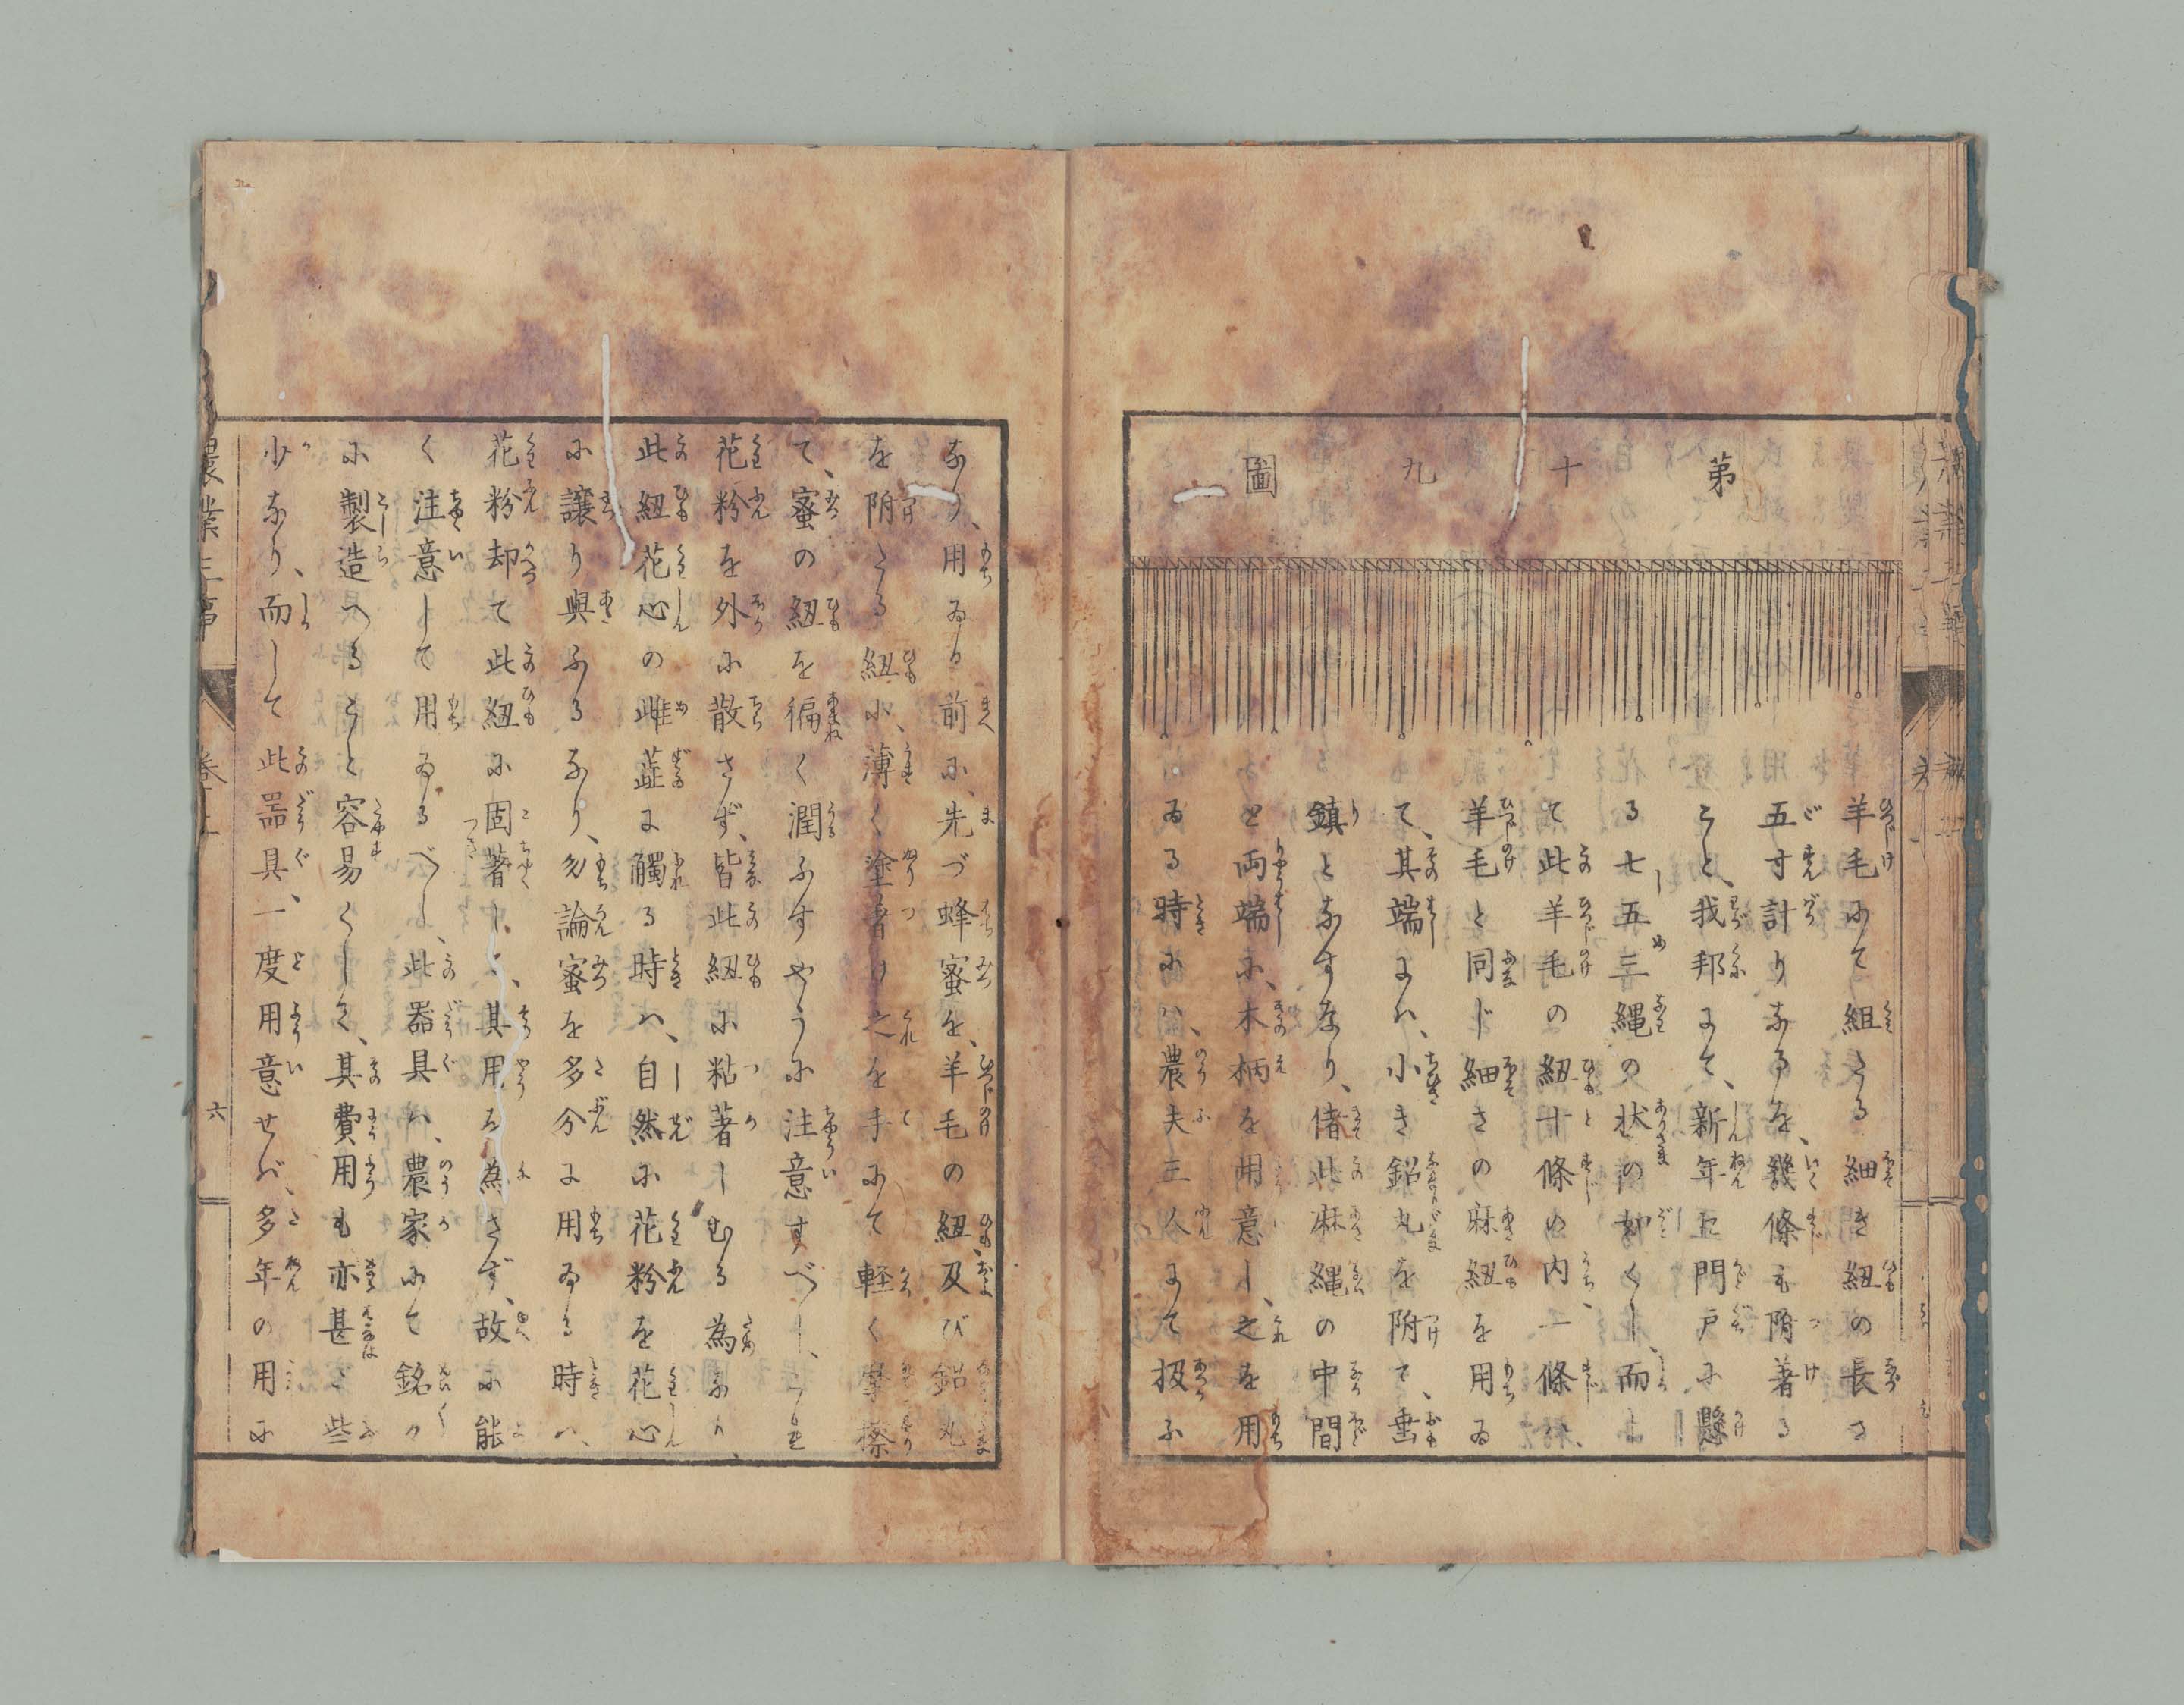 第十九圖
羊毛にて組たる細き紐の長さ
五寸計りなるを、幾條も附著る
こと、我邦にて、新年に門戸に懸
る七五三縄の状の如くし、而し
て此羊毛の紐十條の内一條ハ、
羊毛と同じ細さの麻紐を用ゐ
て、其端にハ、小き鉛丸を附て、垂
鎮となすなり、偖此麻縄の中間
と両端に、木柄を用意し、之を用
ゐる時にハ、農夫三人にて扱ふ
なり、用ゐる前に、先づ蜂蜜を、羊毛の紐及び鉛丸
を附たる紐に、薄く塗著け之を手にて軽く摩擦
て、蜜の紐を徧く潤ふすやうに注意すべし、
花粉を外に散さず、皆此紐に粘著しむる為なり、
此紐花心の雌蕋に觸る時ハ、自然に花粉を花心
に譲り與ふるなり、勿論蜜を多分に用ゐる時ハ、
花粉却て此紐に固著して、其用を為さず、故に能
く注意して用ゐるべし、此器具ハ、農家にて銘々
に製造へること容易くして、其費用も亦甚ご些
少なり、而して此器具、一度用意せバ、多年の用に
農業三事
巻上
六